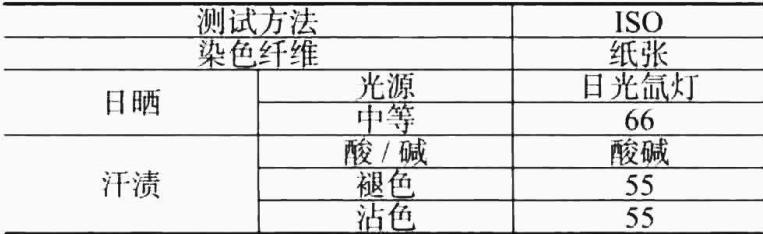 测试方法 ISO
染色纤维 纸张
日晒 光源 日光氙灯
中等 66
汗渍 酸/碱 酸碱
褪色 55
沾色 55